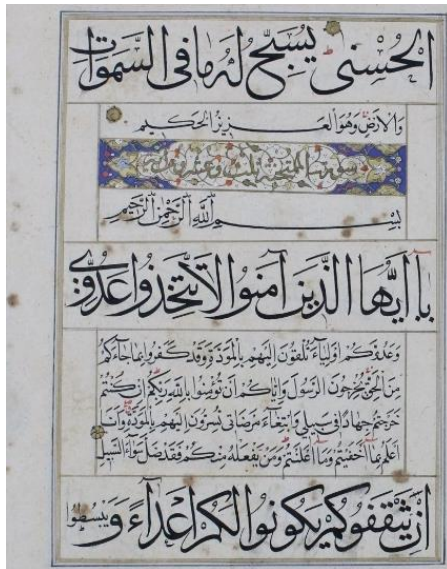 الحسنى يسبح له ما في السموات
والارض وهو العزيز الحكيم
سورة الممتحنة ثلث وعشر
بسم الله الرحمن الرحيم
يا ايها الذين آمنوا لا تتخذوا عدوى
وعدوكم اولياء تلقون اليهم بالمودة وقد كفروا بما جاءكم
من الحق يخرجون الرسول واياكم ان تؤمنوا بالله ربكم ان كنتم
خرجتم جهادا فى سبيلى وابتغاء مرضاتى تسرون اليهم بالمودة وانا
اعلم بما اخفيتم وما اعلنتم ومن يفعله منكم فقد ضل سواء السبيل
ان يثقفوكم يكونوا لكم اعداء و
يبسطوا